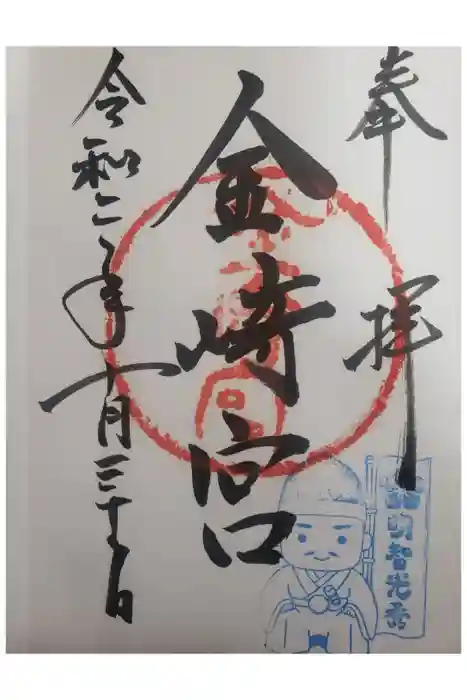 奉拝
金崎宮
令和二年十月三十一日
明智光秀